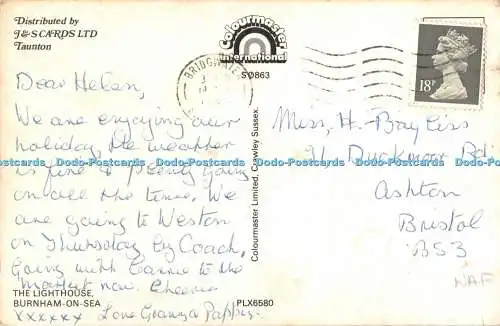 Distributed by
J&S CARDS LTD
Taunton
Colourmaster
International
SO863
BRIDGWATER
18P
Dear Helen,
We are enjoying our
holiday, the weather
is fine & plenty going
on all the time. We
are going to Weston
on Thursday by Coach,
Going with Carrie to the
market now. Cheerio
xxxxxx Love Granza Pappy.
Miss, H. Bayliss
71 Duckmoor Rd.
Ashton
Bristol
BS3
Colourmaster Limited, Crawley Sussex.
THE LIGHTHOUSE,
BURNHAM-ON-SEA
PLX6580
Dodo-Postcards Dodo-Postcards Dodo-Postcards Dodo-Postcards Dodo-Postcards